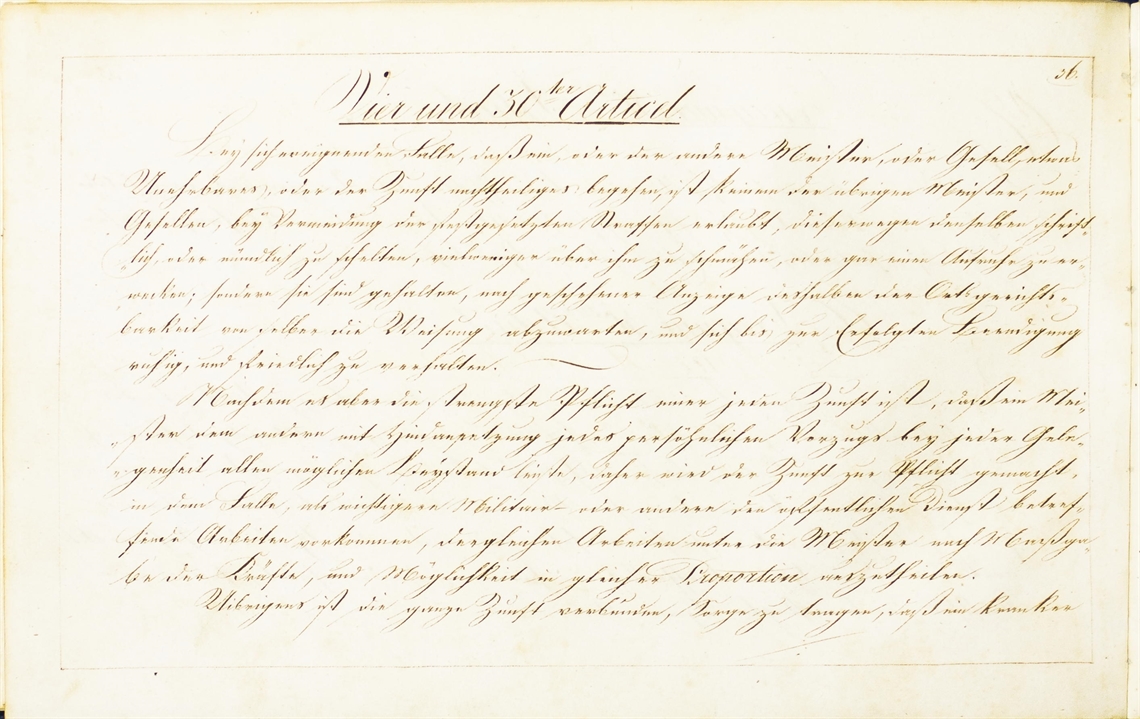 36.
Vier und 30ter Articel
Bey sich ereignenden Falle, daß ein, oder der andere Meister, oder Gesell, etwas
Unehrbares, oder der Zunft nachtheiliges begehen, ist keinem der übrigen Meister, und
Gesellen, bey Vermeidung der festgesetzten Straffen erlaubt, dieserwegen denselben schrift-
lich, oder mündlich zu schelten, vielweniger über ihn zu schmähen, oder gar einen Aufruhr zu er-
wecken; sondern sie sind gehalten, nach geschehener Anzeige deshalben der Ortsgerichts-
barkeit von selber die Weisung abzuwarten, und sich bis zur Erfolgten Beendigung
ruhig, und friedlich zu verhalten.
Nachdem es aber die strengste Pflicht einer jeden Zunft ist, daß ein Mei-
ster dem andern mit Hindansetzung jedes persöhnlichen Vorzugs bey jeder Gele-
genheit allen möglichen Beystand leiste, daher wird der Zunft zur Pflicht gemacht,
in dem Falle, als wichtigere Militair- oder andere den öffentlichen Dienst betref-
fende Arbeiten vorkommen, dergleichen Arbeiten unter die Meister nach Maaßga-
be der Kräfte, und Möglichkeit in gleicher Proportion auszutheilen.
Uibrigens ist die ganze Zunft verbunden, Sorge zu tragen, daß ein kranker